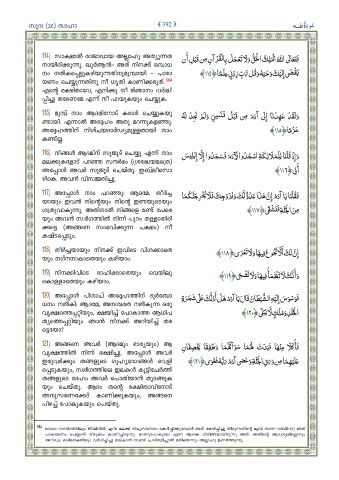 സൂറഃ (20) ത്വാഹാ
( 392 )
سُورَةُ طٰهٰ
114) സാക്ഷാല്‍ രാജാവായ അല്ലാഹു അത്യുന്നത
നായിരിക്കുന്നു. ഖുര്‍ആന്‍- അത് നിനക്ക് ബോധ
നം നല്‍കപ്പെട്ടുകഴിയുന്നതിനുമുമ്പായി - പാരാ
യണം ചെയ്യുന്നതിനു നീ ധൃതി കാണിക്കരുത്.
എന്റെ രക്ഷിതാവേ, എനിക്കു നീ ജ്ഞാനം വര്‍ദ്ധി
പ്പിച്ചു തരേണമേ എന്ന് നീ പറയുകയും ചെയ്യുക.
فَتَعَالَى اللَّهُ الْمَلِكُ الْحَقُّ وَلَا تَعْجَلْ بِالْقُرْآنِ مِن قَبْلِ أَن
يُقْضَىٰ إِلَيْكَ وَحْيُهُ وَقُل رَّبِّ زِدْنِي عِلْمًا ﴿١١٤﴾
115) മുമ്പ് നാം ആദമിനോട് കരാര്‍ ചെയ്യുകയു
ണ്ടായി. എന്നാല്‍ അദ്ദേഹം അതു മറന്നുകളഞ്ഞു.
അദ്ദേഹത്തിന് നിശ്ചയദാര്‍ഢ്യമുള്ളതായി നാം
കണ്ടില്ല.
وَلَقَدْ عَهِدْنَا إِلَىٰ آدَمَ مِن قَبْلُ فَنَسِيَ وَلَمْ نَجِدْ لَهُ
عَزْمًا ﴿١١٥﴾
116) നിങ്ങള്‍ ആദമിന് സുജൂദ് ചെയ്യൂ എന്ന് നാം
മലക്കുകളോട് പറഞ്ഞ സന്ദര്‍ഭം (ശ്രദ്ധേയമത്രെ)
അപ്പോള്‍ അവര്‍ സുജൂദ് ചെയ്തു. ഇബ്‌ലീസൊ
ഴികെ. അവന്‍ വിസമ്മതിച്ചു.
وَإِذْ قُلْنَا لِلْمَلَائِكَةِ اسْجُدُوا لِآدَمَ فَسَجَدُوا إِلَّا إِبْلِيسَ
أَبَىٰ ﴿١١٦﴾
117) അപ്പോള്‍ നാം പറഞ്ഞു: ആദമേ, തീര്‍ച്ച
യായും ഇവന്‍ നിന്റെയും നിന്റെ ഇണയുടെയും
ശത്രുവാകുന്നു. അതിനാല്‍ നിങ്ങളെ രണ്ട് പേരെ
യും അവന്‍ സ്വര്‍ഗത്തില്‍ നിന്ന് പുറം തള്ളാതിരി
ക്കട്ടെ (അങ്ങനെ സംഭവിക്കുന്ന പക്ഷം) നീ
കഷ്ടപ്പെടും.
فَقُلْنَا يَا آدَمُ إِنَّ هَٰذَا عَدُوٌّ لَّكَ وَلِزَوْجِكَ فَلَا يُخْرِجَنَّكُمَا
مِنَ الْجَنَّةِ فَتَشْقَىٰ ﴿١١٧﴾
118) തീര്‍ച്ചയായും നിനക്ക് ഇവിടെ വിശക്കാതെ
യും നഗ്നനാകാതെയും കഴിയാം.
إِنَّ لَكَ أَلَّا تَجُوعَ فِيهَا وَلَا تَعْرَىٰ ﴿١١٨﴾
119) നിനക്കിവിടെ ദാഹിക്കാതെയും വെയിലു
കൊള്ളാതെയും കഴിയാം.
وَأَنَّكَ لَا تَظْمَأُ فِيهَا وَلَا تَضْحَىٰ ﴿١١٩﴾
120) അപ്പോള്‍ പിശാച് അദ്ദേഹത്തിന് ദുര്‍ബോ
ധനം നല്‍കി: ആദമേ, അനശ്വരത നല്‍കുന്ന ഒരു
വൃക്ഷത്തെപ്പറ്റിയും, ക്ഷയിച്ച് പോകാത്ത ആധിപ
ത്യത്തെപ്പറ്റിയും ഞാന്‍ നിനക്ക് അറിയിച്ച് തര
ട്ടെയോ?
فَوَسْوَسَ إِلَيْهِ الشَّيْطَانُ قَالَ يَا آدَمُ هَلْ أَدُلُّكَ عَلَىٰ شَجَرَةِ
الْخُلْدِ وَمُلْكٍ لَّا يَبْلَىٰ ﴿١٢٠﴾
121) അങ്ങനെ അവര്‍ (ആദമും ഭാര്യയും) ആ
വൃക്ഷത്തില്‍ നിന്ന് ഭക്ഷിച്ചു. അപ്പോള്‍ അവര്‍
ഇരുവര്‍ക്കും തങ്ങളുടെ ഗുഹ്യഭാഗങ്ങള്‍ വെളി
പ്പെടുകയും, സ്വര്‍ഗത്തിലെ ഇലകള്‍ കൂട്ടിചേര്‍ത്ത്
തങ്ങളുടെ ദേഹം അവര്‍ പൊതിയാന്‍ തുടങ്ങുക
യും ചെയ്തു. ആദം തന്റെ രക്ഷിതാവിനോട്
അനുസരണക്കേട് കാണിക്കുകയും, അങ്ങനെ
പിഴച്ച് പോകുകയും ചെയ്തു.
فَأَكَلَا مِنْهَا فَبَدَتْ لَهُمَا سَوْآتُهُمَا وَطَفِقَا يَخْصِفَانِ
عَلَيْهِمَا مِن وَرَقِ الْجَنَّةِ وَعَصَىٰ آدَمُ رَبَّهُ فَغَوَىٰ ﴿١٢١﴾